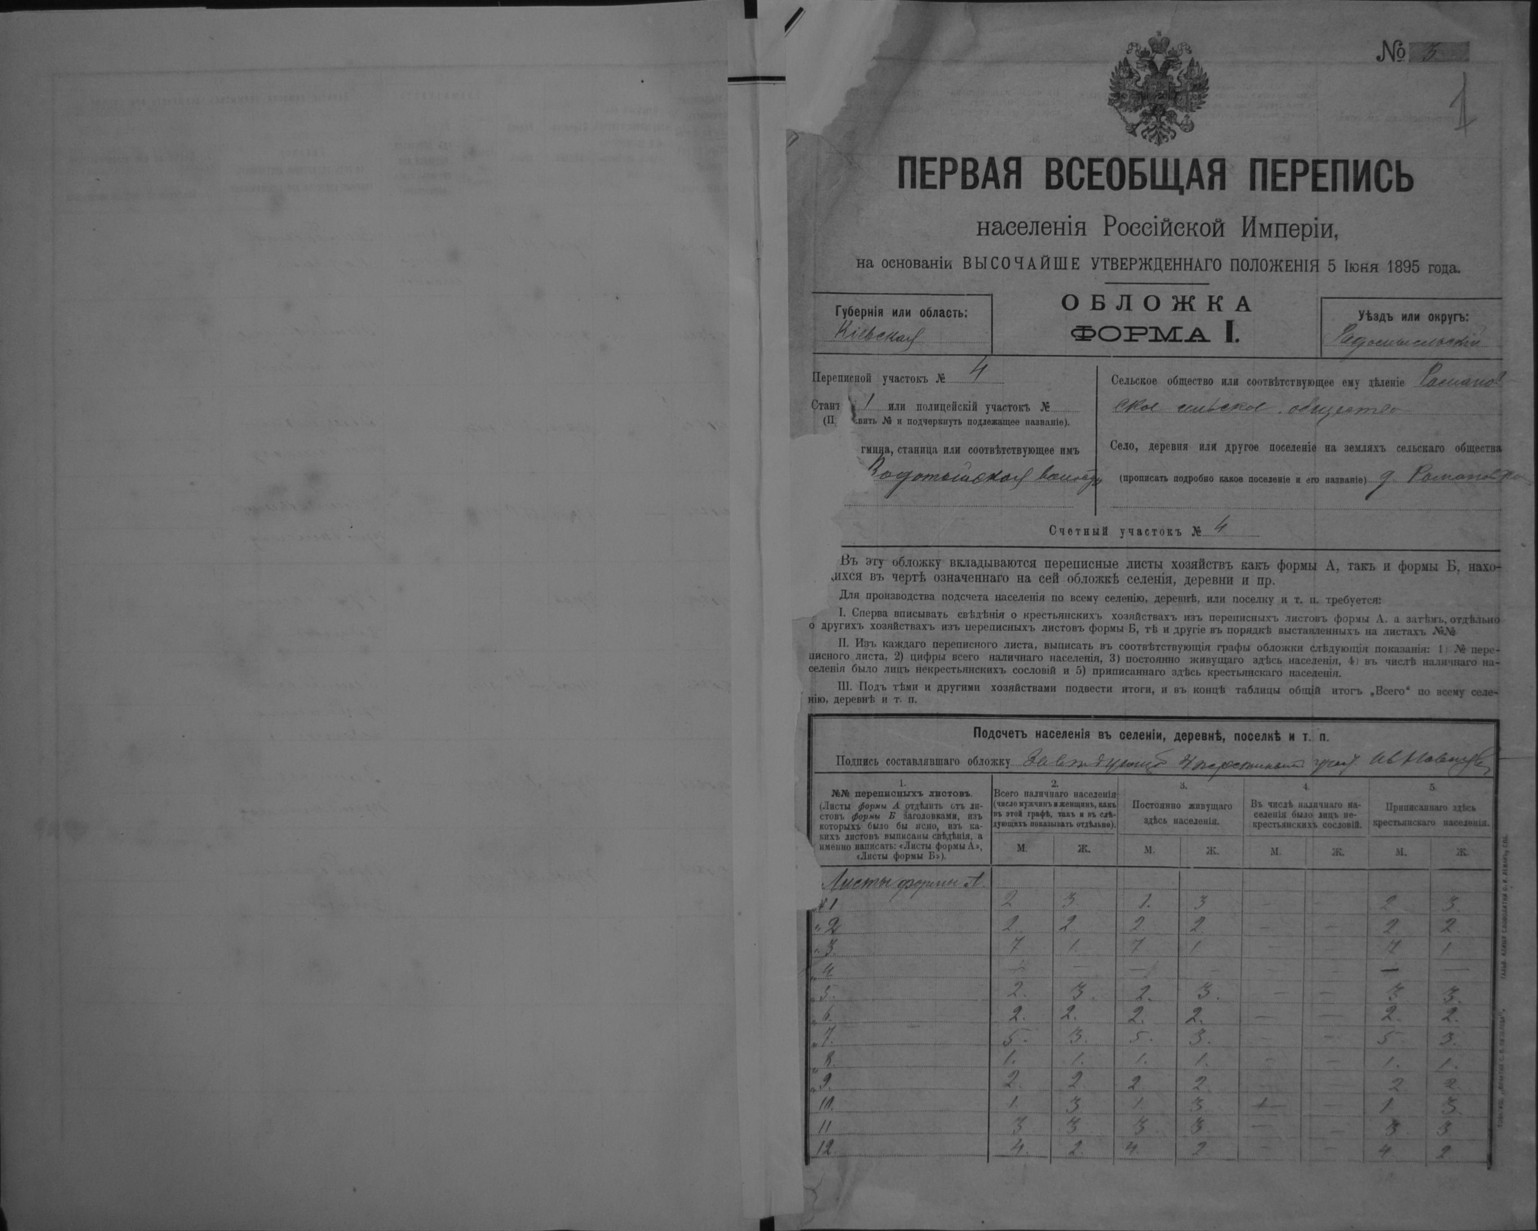 № 3
1
ПЕРВАЯ ВСЕОБЩАЯ ПЕРЕПИСЬ
населенія Россійской Имперіи,
на основаніи ВЫСОЧАЙШЕ УТВЕРЖДЕННАГО ПОЛОЖЕНІЯ 5 Іюня 1895 года.
ОБЛОЖКА
ФОРМА I.
Губернія или область:
Кіевская
Уѣздъ или округъ:
Радомысльскій
Переписной участокъ № 4
Стан 1 или полицейскій участокъ №
нить № и подчеркнуть подлежащее названіе).
гмина, станица или соотвѣтствующее имъ
Водотыйская волость
Сельское общество или соотвѣтствующее ему дѣленіе Романов
ское сельское общество
Село, деревня или другое поселеніе на земляхъ сельскаго общества
(прописать подробно какое поселеніе и его названіе) д. Романовка
Счетный участокъ № 4
Въ эту обложку вкладываются переписные листы хозяйствъ какъ формы А, такъ и формы Б, нахо-
ихся въ чертѣ означеннаго на сей обложкѣ селенія, деревни и пр.
Для производства подсчета населенія по всему селенію, деревнѣ, или поселку и т. п. требуется:
I. Сперва вписывать свѣдѣнія о крестьянскихъ хозяйствахъ изъ переписныхъ листовъ формы А. а затѣмъ, отдѣльно
о другихъ хозяйствахъ изъ переписныхъ листовъ формы Б, тѣ и другіе въ порядкѣ выставленныхъ на листахъ №№
II. Изъ каждаго переписного листа, выписать въ соотвѣтствующія графы обложки слѣдующія показанія: 1) № пере-
писного листа, 2) цифры всего наличнаго населенія, 3) постоянно живущаго здѣсь населенія, 4) въ числѣ наличнаго на-
селенія было лицъ некрестьянскихъ сословій и 5) приписаннаго здѣсь крестьянскаго населенія.
III. Подъ тѣми и другими хозяйствами подвести итоги, и въ концѣ таблицы общій итогъ „Всего“ по всему селе-
нію, деревнѣ и т. п.
Подсчетъ населенія въ селеніи, деревнѣ, поселкѣ и т. п.
Подпись составлявшаго обложку Завѣдующій 4 переписнымъ участ
1.
№№ переписныхъ листовъ.
(Листы формы А отдѣлить отъ ли-
стовъ формы Б заголовками, изъ
которыхъ было бы ясно, изъ ка-
кихъ листовъ выписаны свѣдѣнія, а
именно написать: «Листы формы А»,
«Листы формы Б»).
2.
Всего наличнаго населенія
(число мужчинъ и женщинъ, какъ
въ этой графѣ, такъ и въ слѣ-
дующихъ показывать отдѣльно).
3.
Постоянно живущаго
здѣсь населенія.
4.
Въ числѣ наличнаго на-
селенія было лицъ не-
крестьянскихъ сословій.
5.
Приписаннаго здѣсь
крестьянскаго населенія.
М. Ж. М. Ж. М. Ж. М. Ж.
Листы формы А.
1 2 3 1. 3 - - 2 3.
2 2. 2 2 2 - - 2 2
3 7 1. 7 1 7 1
4 - - - - - -
5. 2. 3. 2. 3. - - 3. 3.
6. 2. 2. 2. 2. - - 2. 2.
7. 5. 3. 5. 3. - - 5 3.
8. 1. 1. 1. 1. - - 1. 1.
9. 2. 2 2 2. 2 2
10. 1. 3 1. 3 - - 1 3
11 3 3 3 3. - - 3 3
12 4. 2. 4. 2 - - 4 2